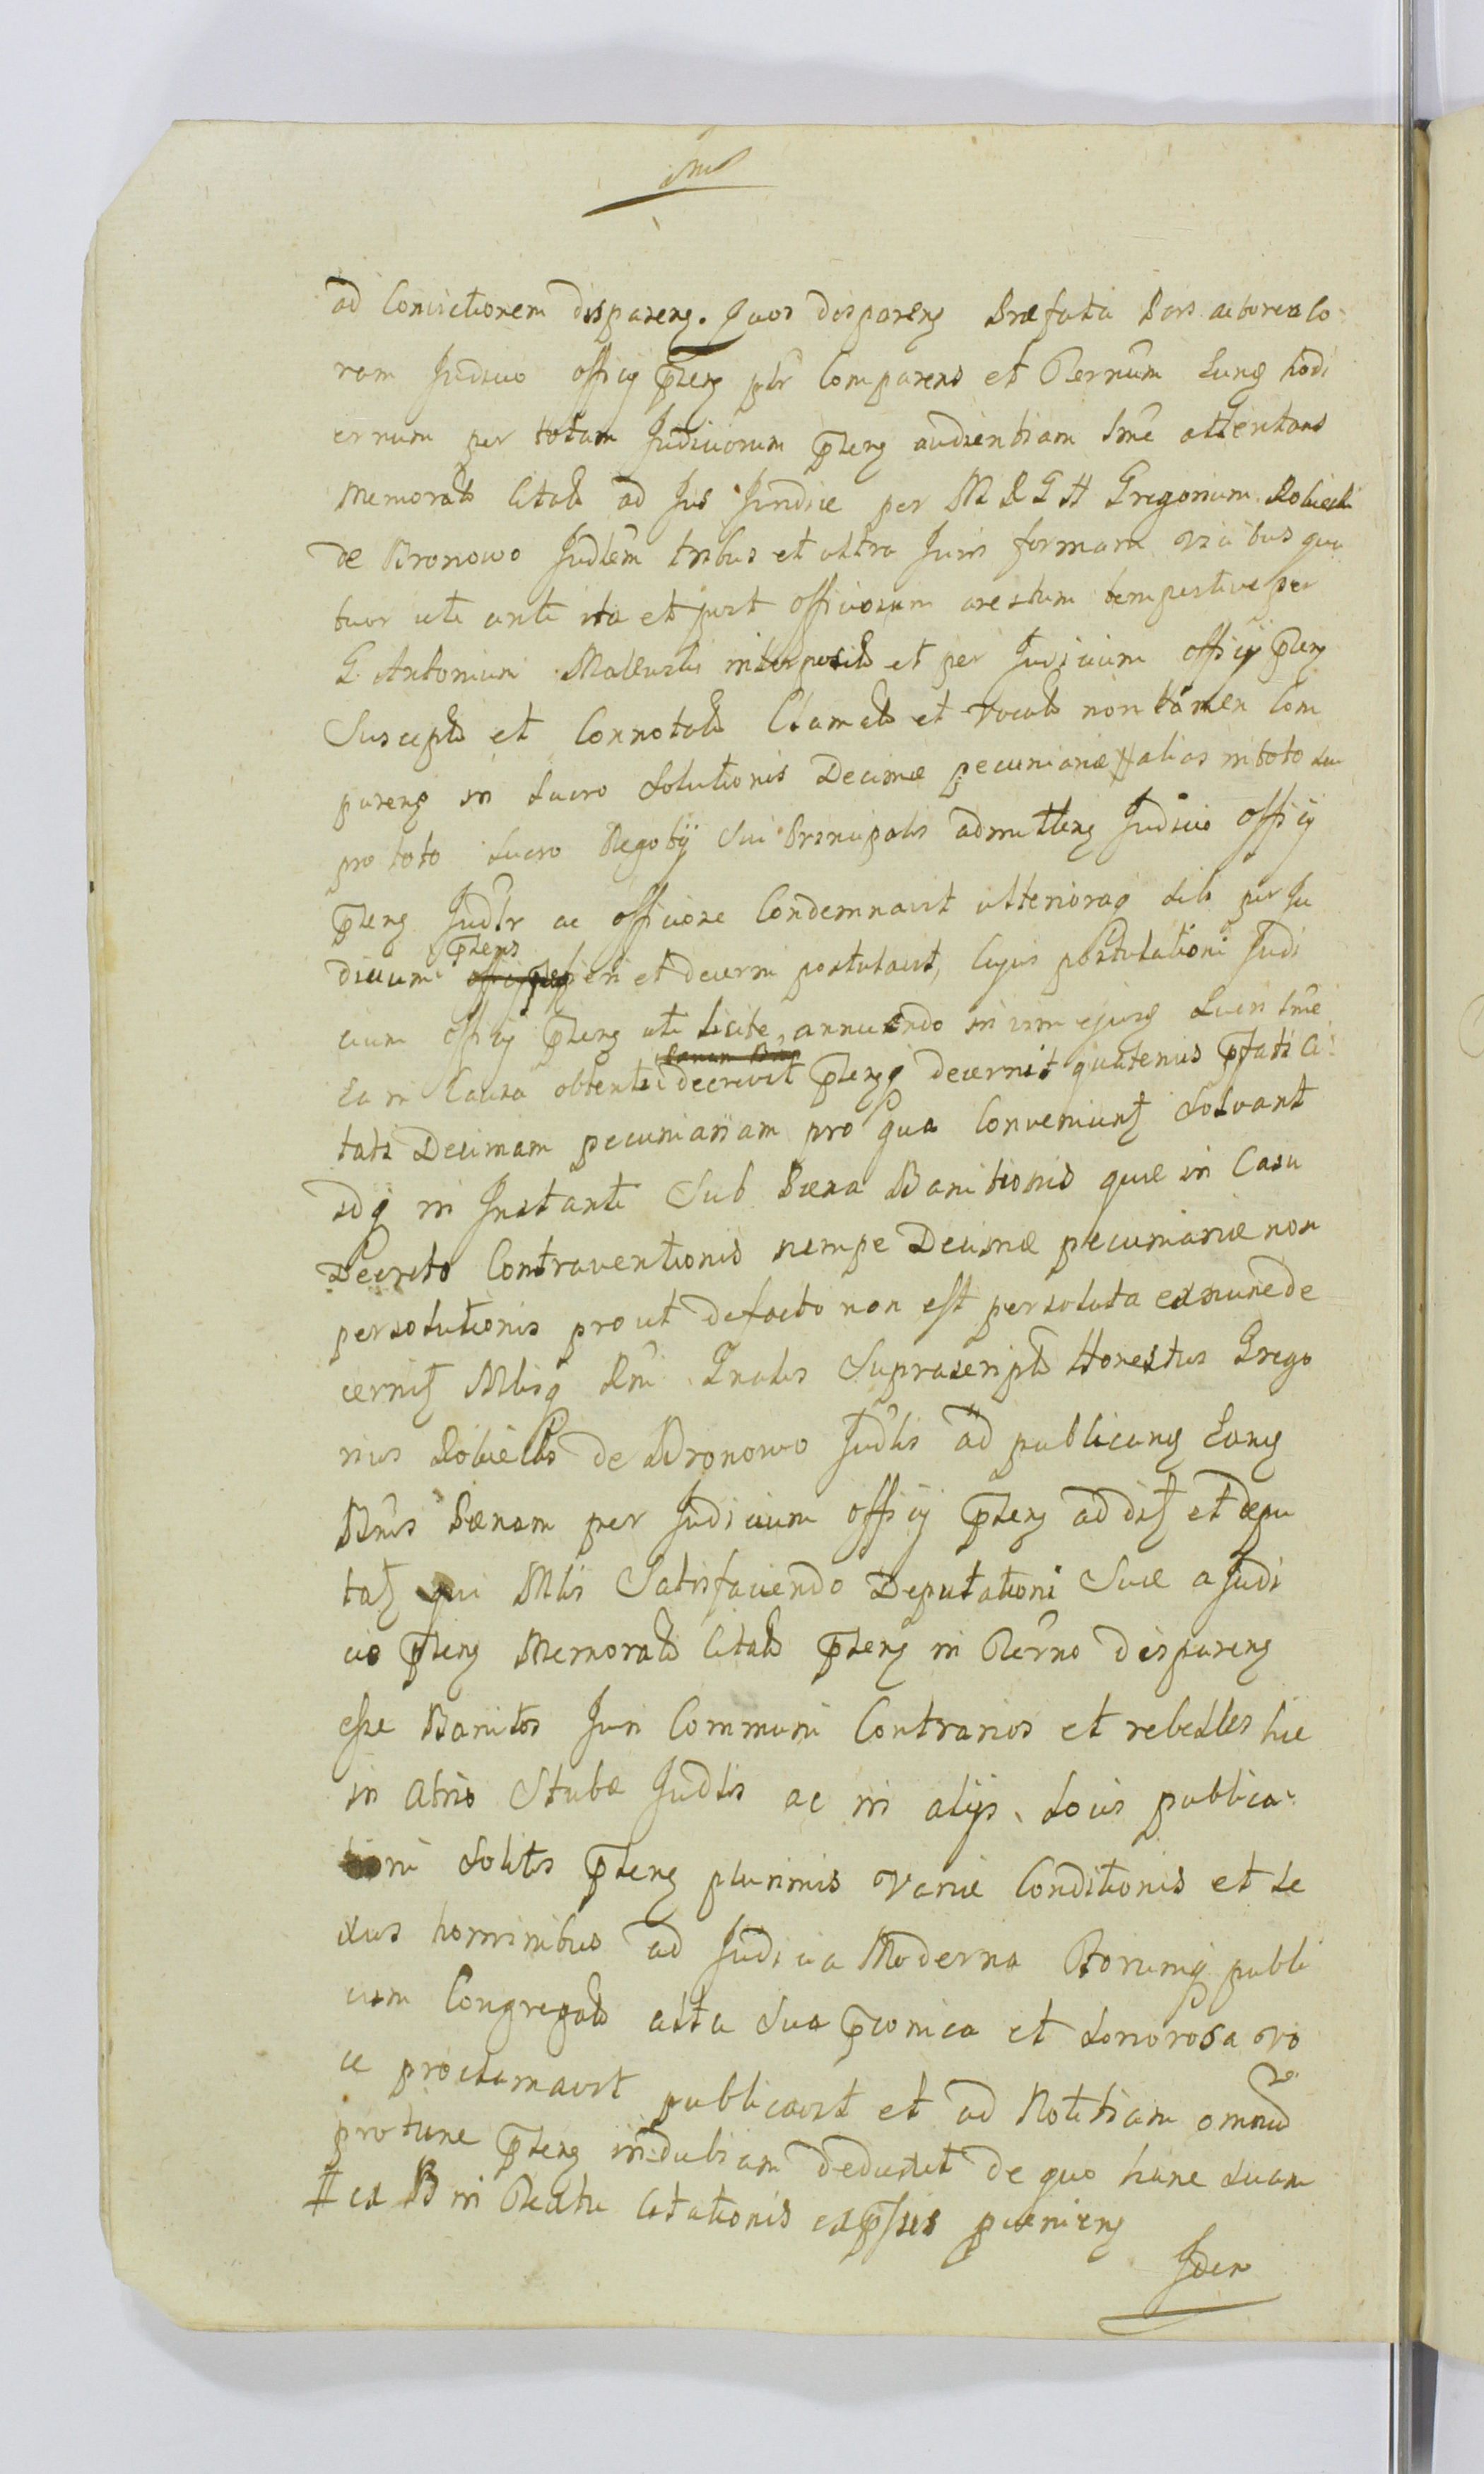 ad Convictionem dispareng. Quos dispareng Præfata Pars actorea Co-
ram Judicio officij pñteng pñtr Comparens et Termnum hunc hodi
ernum per totam Judiciorum pñteng audientiam Sme attentans
Memorats Citats ad Jus Juridice per M R G H Gregorium Kobiecki
de Bronowo Judlem tribus et ultra Juris formam vicibus qua
tuor uti ante ita et post officiosum arestum tempestive per
G. Antonium interposits et per Judicium officij pñteng
Suscepts et Connotats Clamats et vocats non tamen Com
pareng in Lucro Solutionis Decimæ pecuniariæ # alias in toto seu
pro toto Lucro Negotij Sui Principalis admitteng Judicio officij
pñteng Judlr ac officiose Condemnavit ulterioraq sibi per Ju
dicium pñtens fieri et decerni postulavit, Cujus postulationi Judi
cium officij pñteng uti licite annuendo in vim ejusq Lucri Sme
Ea in Causa obtenti decrevit pñtengq decernit quatenus pfati Ci-
tati Decimam pecuniariam pro qua Conveniunt Solvant
idq in Instanti Sub Pæna Banitionis quæ in Casu
Decreto Contraventionis nempe Decimæ pecuniariæ non
persolutionis prout defacto non est persoluta exnunc de
cernit Mlisq Rni Gnalis Suprascripts Honestus Grego
rius Kobiecki de Bronowo Judlis ad publicang Eang
Bnis Pænam per Judicium officij pñteng addit et depu
tat qui Mlis Satisfaciendo Deputationi Suæ a Judi
cio pñteng Memorats Citats pñteng in Termno dispareng
esse Banitos Juri Communi Contrarios et rebelles hic
in atrio Stubæ Judlis ac in alijs Locis publica-
tioni Solitis pñteng plurimis variæ Conditionis et Se
xus hominibus ad Judicia Moderna Forumq publi
cum Congregats alta Sua pconica et Sonorosa vo
ce proclamavit publicavit et ad Notitiam omnium
protunc pñteng indubiam deduxit de quo hanc Suam
# ex B in Reatu Citationis expssis pveniens
Iden